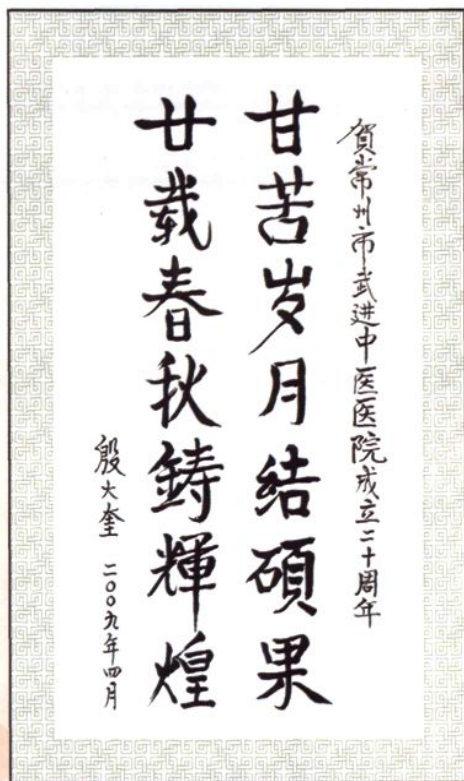 賀常州市武进中医医院成立二十周年
甘苦岁月结碩果
廿载春秋鋳輝煌
殷大奎 二〇〇九年四月